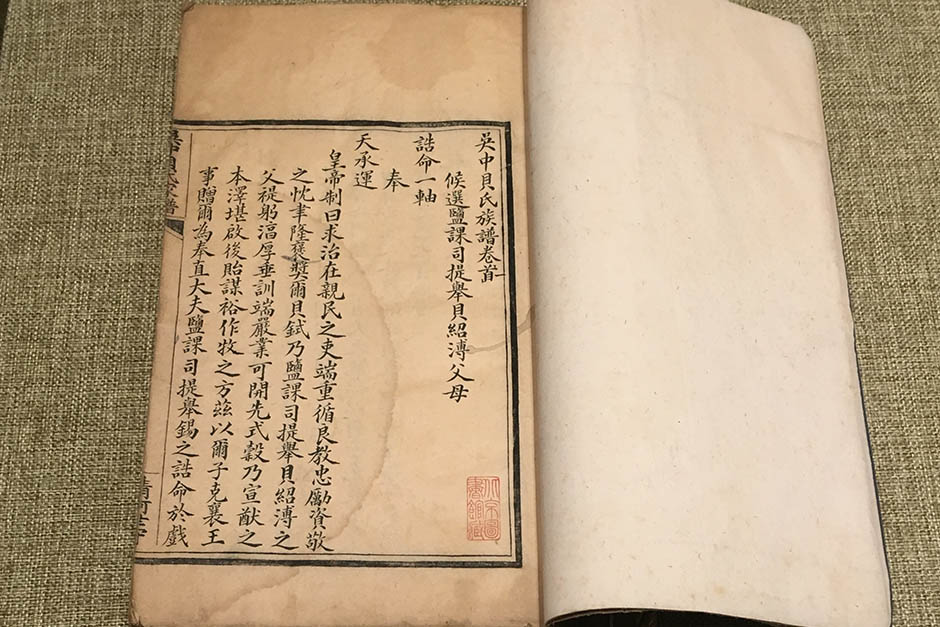 吳中貝氏族譜卷首
候選鹽課司提舉貝紹溥父母
誥命一軸
奉
天承運
皇帝制曰求治在親民之吏端重循良教忠勵資敬
之忱聿隆褒獎爾貝鋱乃鹽課司提舉貝紹溥之
父褆躬淳厚垂訓端嚴業可開先式穀乃宣猷之
本澤堪啟後貽謀裕作牧之方茲以爾子克襄王
事贈爾為奉直大夫鹽課司提舉錫之誥命於戲